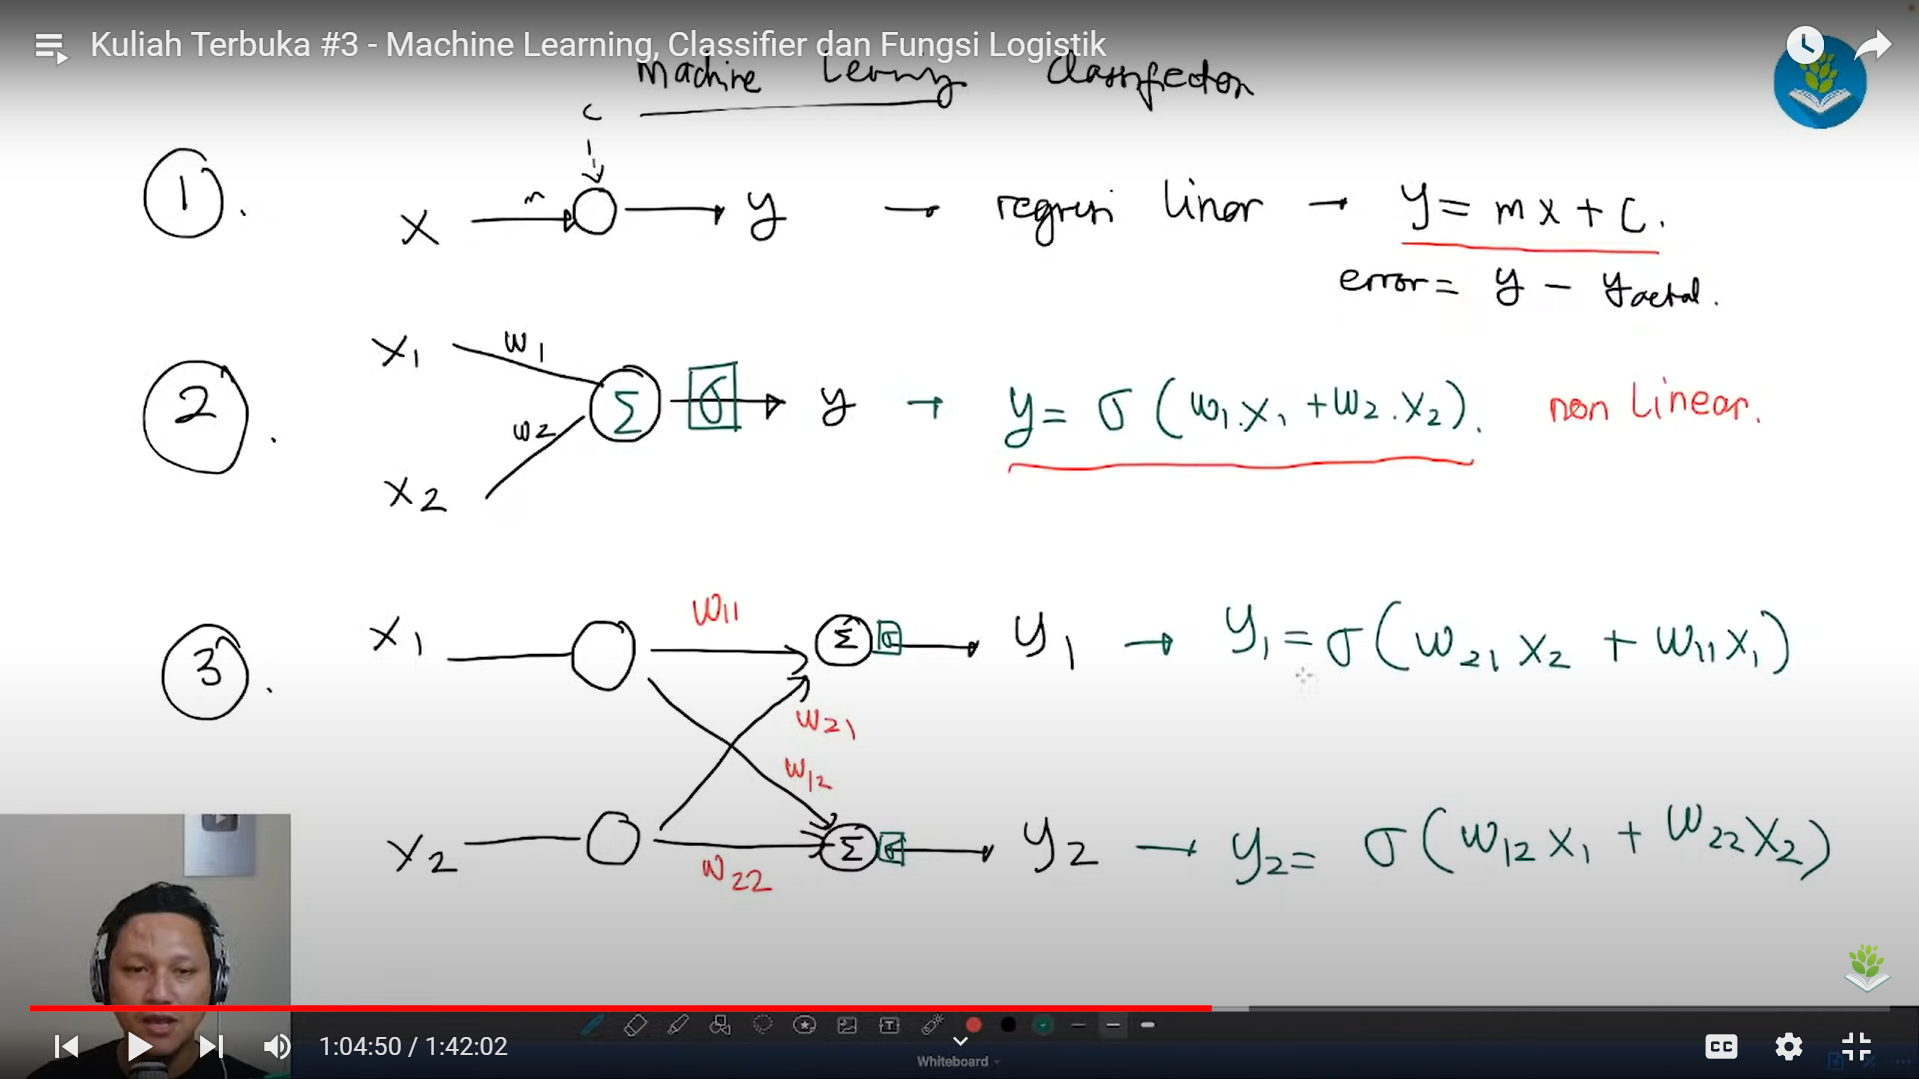 Kuliah Terbuka #3 - Machine Learning, Classifier dan Fungsi Logistik
Machine
c
1.
x m y → regresi linear → y = mx + c.
error = y - yactual.
2.
x1 w1
Σ σ y → y = σ (w1.x1 + w2.x2). non Linear.
w2
x2
3.
x1 w11 Σ σ y1 → y1 = σ(w21 x2 + w11 x1)
w21
w12
x2 w22 Σ σ y2 → y2 = σ(w12 x1 + w22 x2)
1:04:50 / 1:42:02
CC
Whiteboard